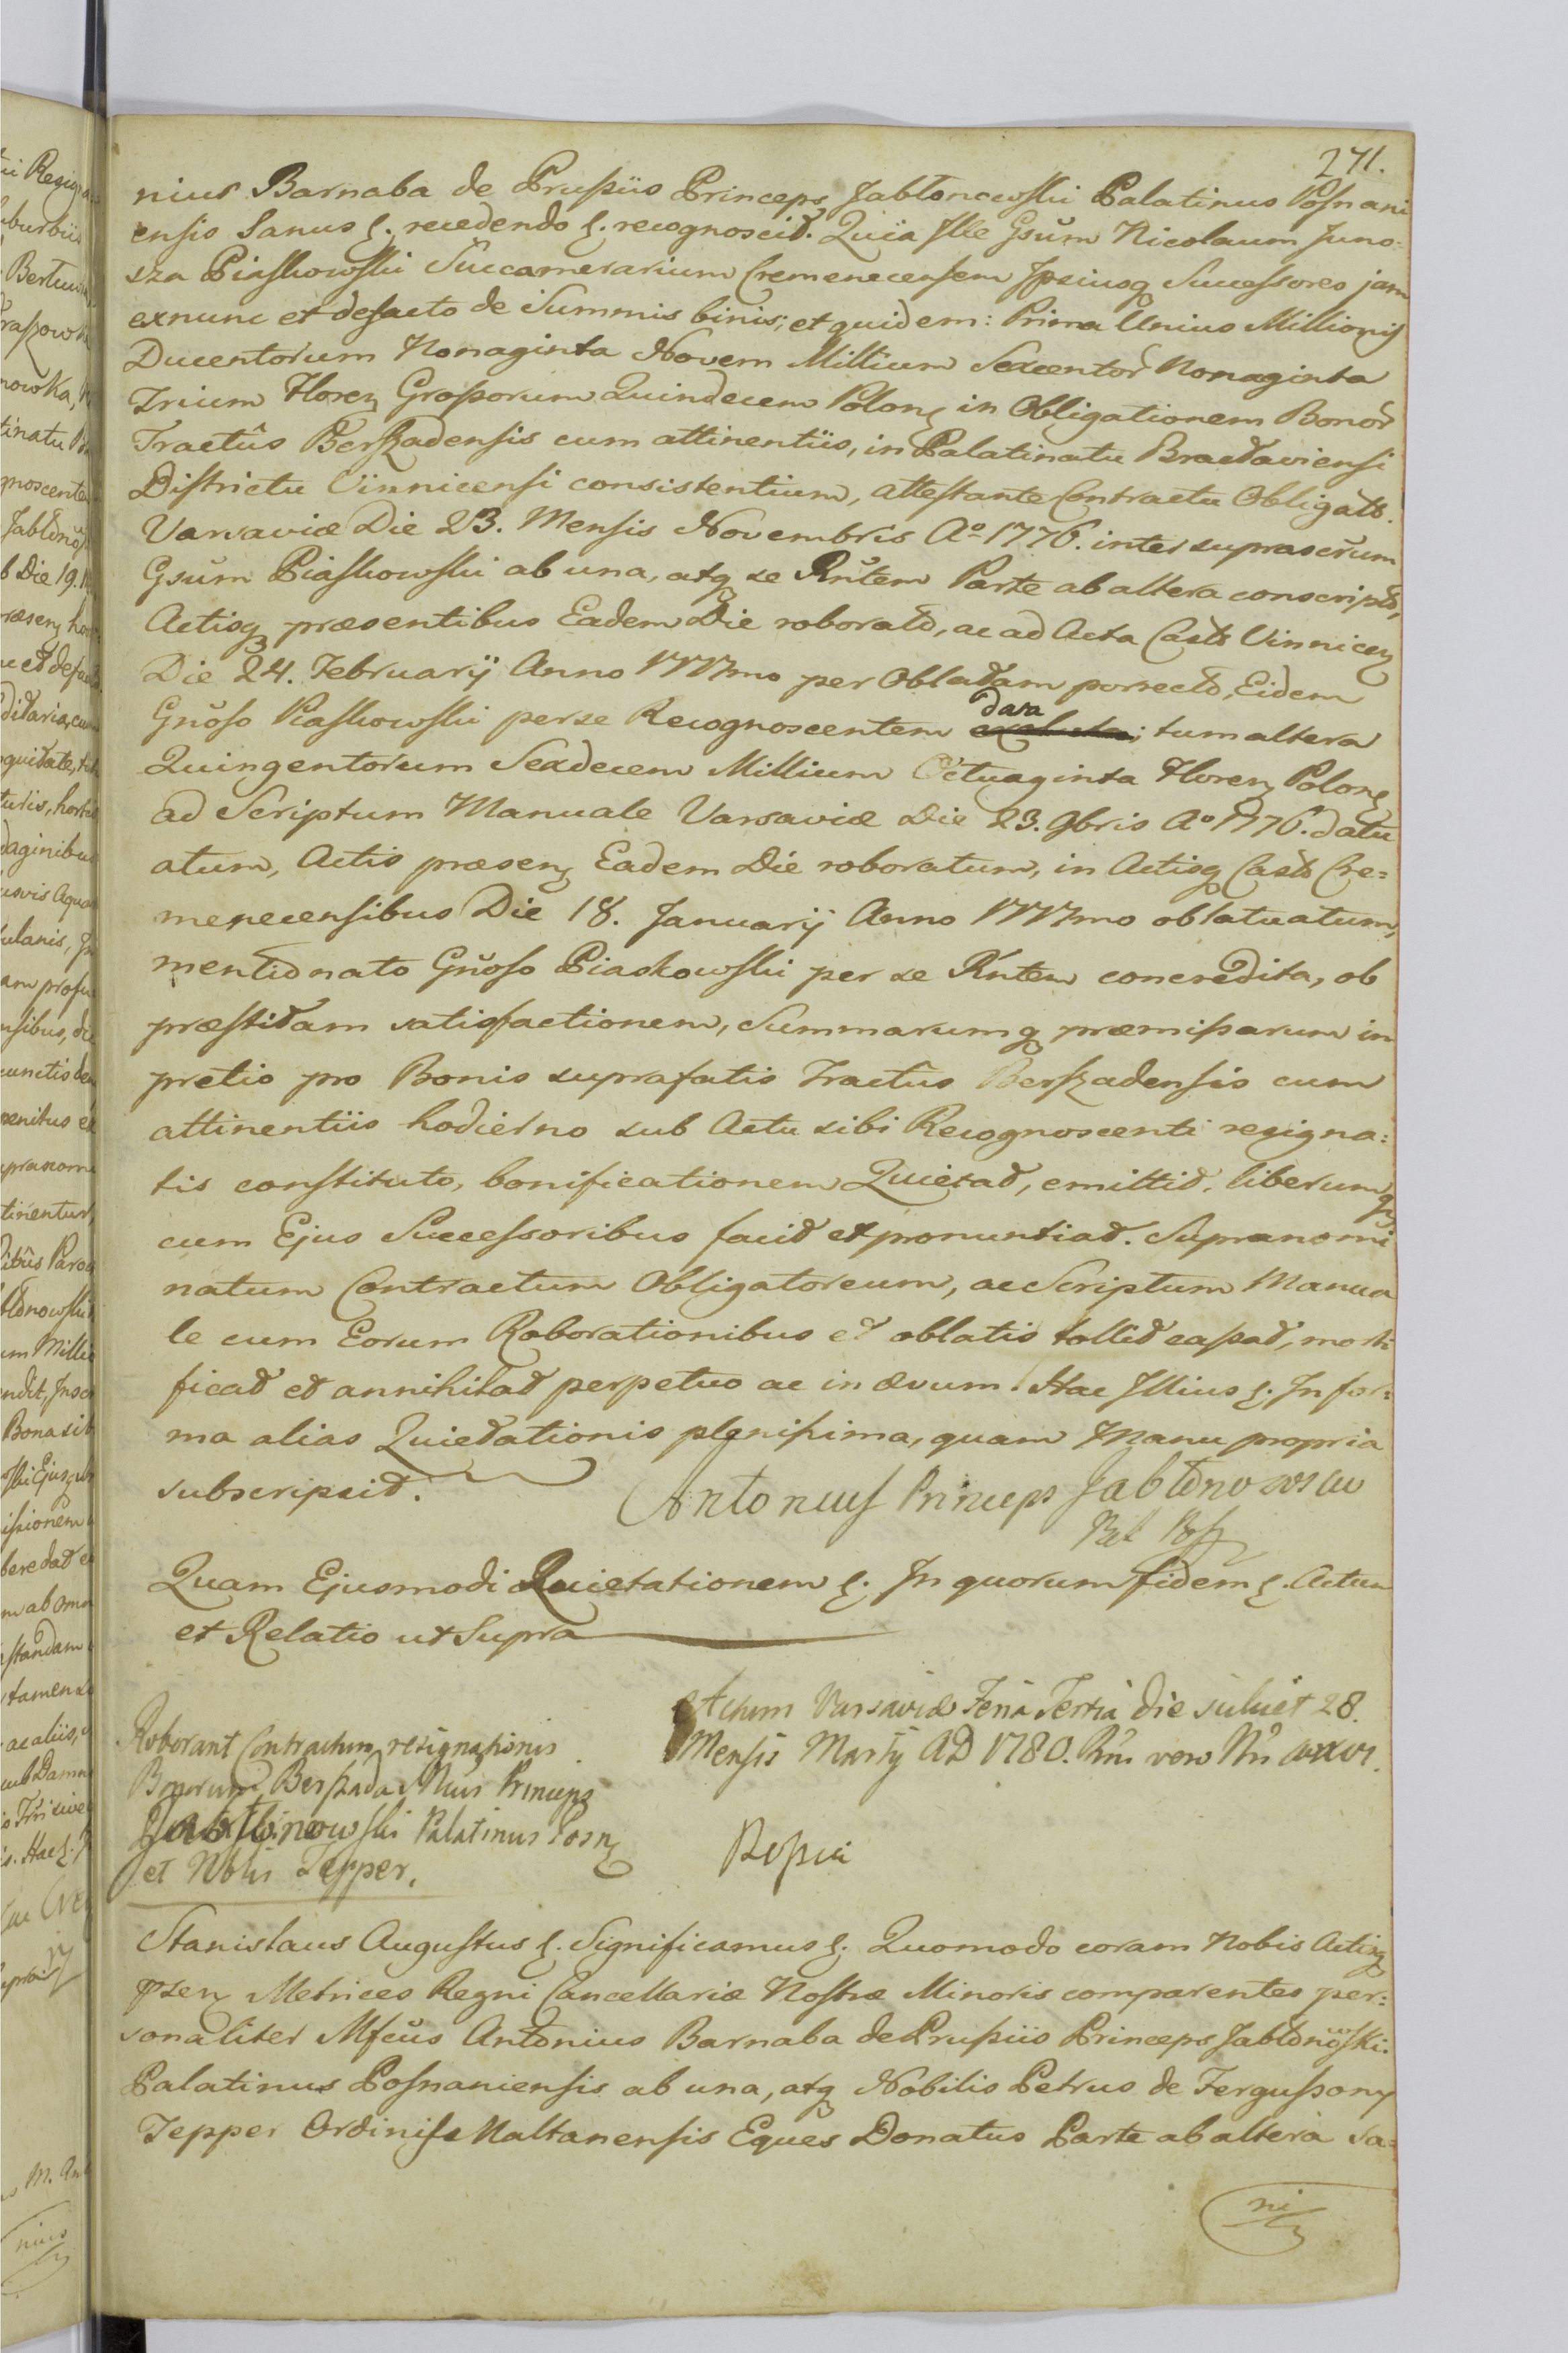 271.
nius Barnaba de Prussiis Princeps Jabłonowski Palatinus Posnani
ensis Sanus &. recedendo &. recognoscit. Quia Ille Gsum Nicolaum Juno=
sza Piaskowski Succamerarium Cremenecensem Ipsiusq Successores jam
exnunc et defacto de Summis binis; et quidem: Prima Unius Millionis
Ducentorum Nonaginta Novem Millium Sexcentor Nonaginta
Trium Floren Grossorum Quindecem Polon in Obligationem Bonor
Tractûs Berszadensis cum attinentiis, in Palatinatu Bracłaviensi
Districtu Vinnicensi consistentium, attestante Contractu Obligato.
Varsaviæ Die 23. Mensis Novembris Aº 1776. inter suprascrum
Gsum Piaskowski ab una, atq se Rntem Parte ab altera conscripto,
Actisq præsentibus Eadem Die roborato, ac ad Acta Casts Vinnicen
Die 24. Februarij Anno 1777mo per Oblatam porrecto, Eidem
Gnoso Piaskowski per se Recognoscentem data; tum altera
Quingentorum Sexdecem Millium Octuaginta Floren Polon
ad Scriptum Manuale Varsaviæ Die 23. 9bris Aº 1776. datu
atum, Actis præsen Eadem Die roboratum, in Actisq Casts Cre=
menecensibus Die 18. Januarij Anno 1777mo oblatuatum,
mentionato Gnoso Piaskowski per se Rntem concredita, ob
præstitam satisfactionem, Summarumq præmissarum in
pretio pro Bonis suprafatis Tractûs Berszadensis cum
attinentiis hodierno sub Actu sibi Recognoscenti resigna=
tis constituto, bonificationem Quietat, emittit, liberumq
cum Ejus Successoribus facit et pronuntiat. Supranomi
natum Contractum Obligatorium, ac Scriptum Manua
le cum Eorum Roborationibus et oblatis tollit cassat, morti
ficat et annihilat perpetuo ac in ævum. Hac Illius &. In for=
ma alias Quietationis plenissima, quam Manu propria
subscripsit.
Antonius Princeps Jabłonowski
Pal Pos
Quam Ejusmodi Quietationem &. In quorum fidem &. Actum
et Relatio ut Supra
Actum Varsaviæ Feria Tertia die scilicet 28.
Mensis Martij AD 1780.
Roborant Contractum resignationis
Bonorum Berszada Princeps
Jabłonowski Palatinus Posn
et Nobilis Tepper.
Stanislaus Augustus &. Significamus &. Quomodo coram Nobis Actisq
præsen Metrices Regni Cancellariæ Nostræ Minoris comparentes per=
sonaliter Mfcus Antonius Barnaba de Prussiis Princeps Jabłonowski.
Palatinus Posnaniensis ab una, atq Nobilis Petrus de Fergussony
Tepper Ordinis Maltanensis Eques Donatus Parte ab altera sa=
ni